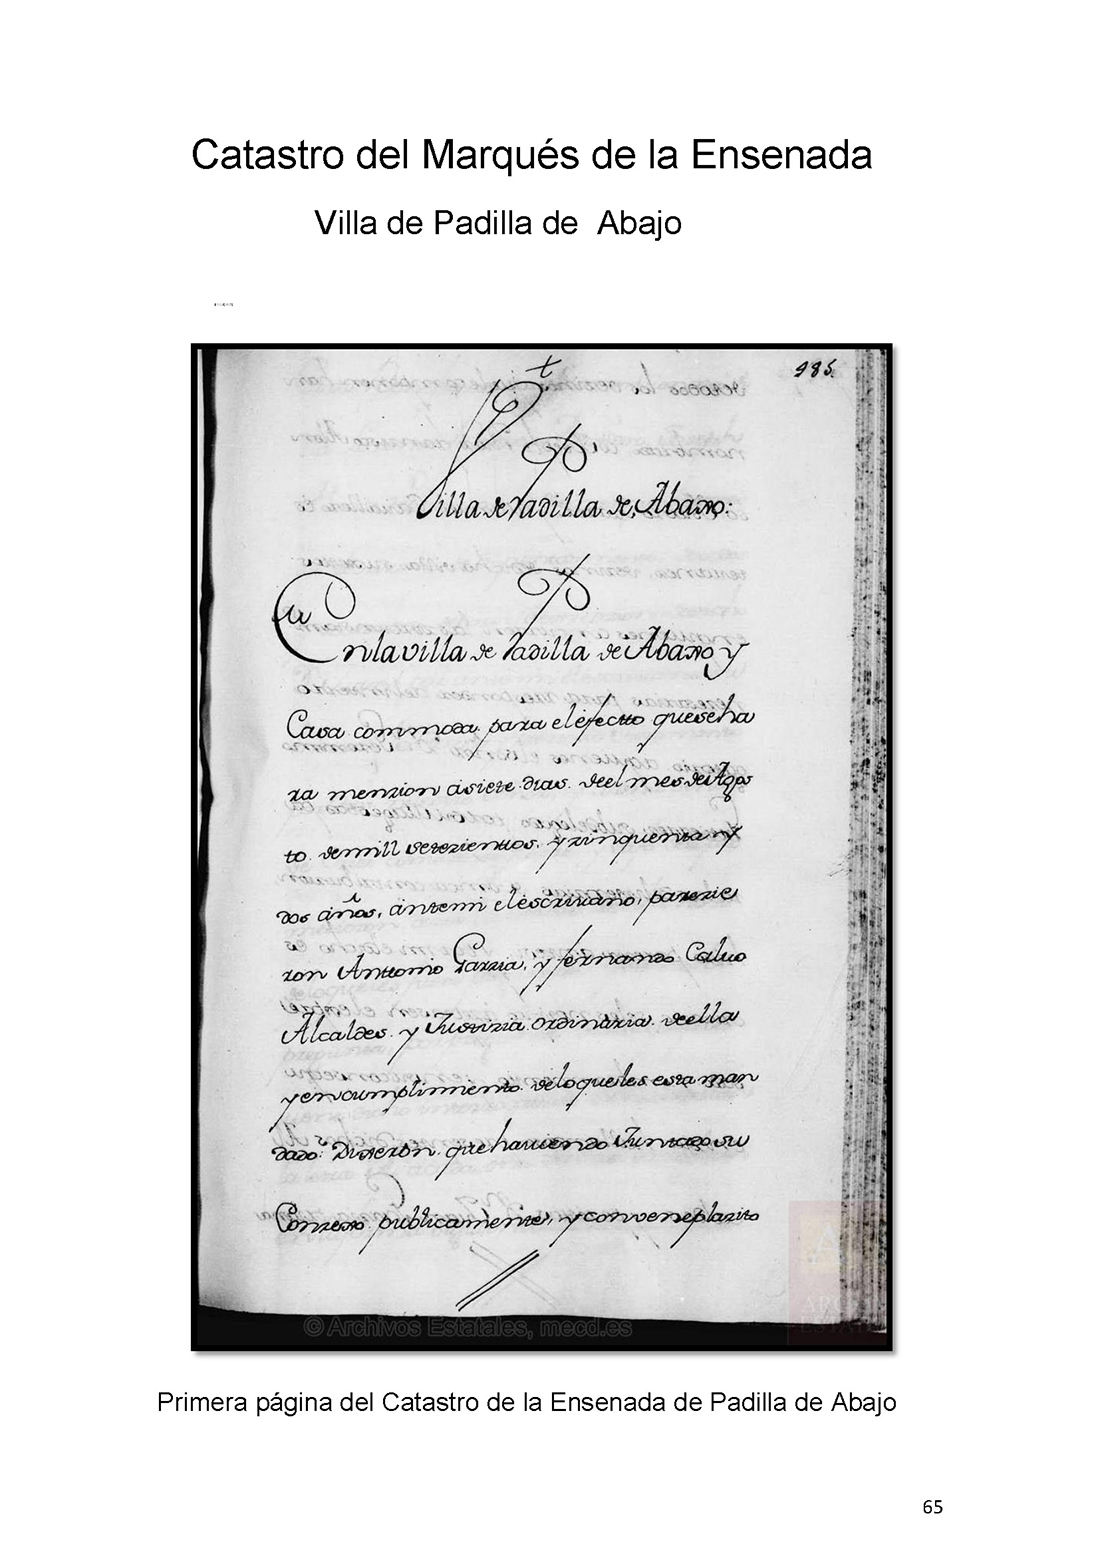 Catastro del Marqués de la Ensenada
Villa de Padilla de Abajo
985.
Villa de Padilla de Abaxo:
En la villa de Padilla de Abaxo y
Casa commoda para el efectto que se ha
ra menzion a siete dias de el mes de Agos
to de mill setezienttos y zinquenta y
dos años, ante mi el escrivano, parezie
ron Anttonio Garzia, y fernando Calvo
Alcaldes y Justizia ordinaria de ella
y en cumplimiento de lo que les esta man
dado: Dixeron que haviendo Juntado su
Conzexo publicamente, y conveneplazito
© Archivos Estatales, mecd.es
Primera página del Catastro de la Ensenada de Padilla de Abajo
65